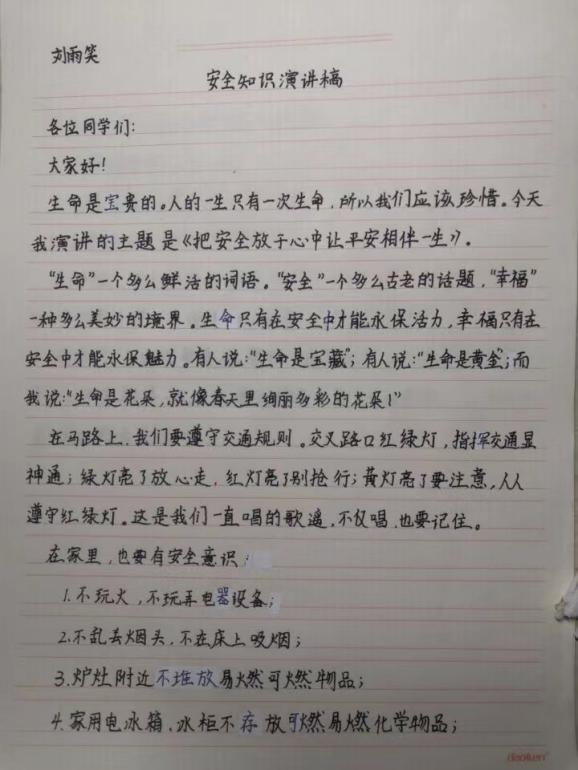 刘雨笑
安全知识演讲稿
各位同学们:
大家好!
生命是宝贵的。人的一生只有一次生命,所以我们应该珍惜。今天
我演讲的主题是《把安全放于心中让平安相伴一生》。
“生命”一个多么鲜活的词语。“安全”一个多么古老的话题,“幸福”
一种多么美妙的境界。生命只有在安全中才能永保活力,幸福只有在
安全中才能永保魅力。有人说:“生命是宝藏”;有人说:“生命是黄金”;而
我说:“生命是花朵,就像春天里绚丽多彩的花朵!”
在马路上,我们要遵守交通规则。交叉路口红绿灯,指挥交通显
神通;绿灯亮了放心走,红灯亮了别抢行;黄灯亮了要注意,人人
遵守红绿灯。这是我们一直唱的歌遥,不仅唱,也要记住。
在家里,也要有安全意识:
1.不玩火,不玩弄电器设备;
2.不乱丢烟头,不在床上吸烟;
3.炉灶附近不堆放易燃可燃物品;
4.家用电冰箱、冰柜不存放可燃易燃化学物品;